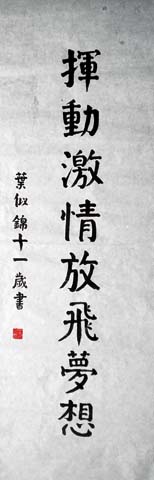 揮動激情放飛夢想
葉似錦十一歲書